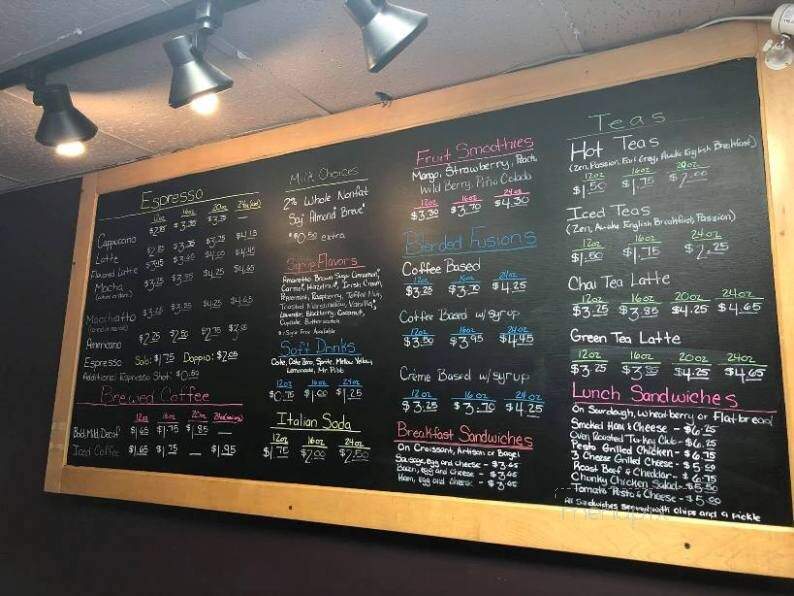 Espresso
12oz 16oz 20oz 24oz
Cappuccino $2.85 $3.35 $3.75 —
Latte $3.35 $3.75 $4.15
Flavored Latte $3.65 $4.00 $4.45
Mocha $3.25 $4.25 $4.65
Macchiatto $4.25 $4.65
Americano $2.25 $2.50 $2.75
Espresso Solo: $1.75 Doppio: $2.05
Additional Espresso Shot: $0.50
Brewed Coffee
12oz 16oz 20oz
Bold, Mild, Decaf $1.65 $1.75 $1.85 —
Iced Coffee $1.65 $1.75 — $1.95
Milk Choices
2% Whole Nonfat
Soy Almond Breve*
*$0.50 extra
Syrup Flavors
Amaretto Brown Sugar Cinnamon,
Caramel, Hazelnut, Irish Cream,
Peppermint, Raspberry, Toffee Nut,
Toasted Marshmallow, Vanilla,
Lavender, Blackberry, Coconut,
Cupcake, Butterscotch
Sugar Free Available
Soft Drinks
Coke, Coke Zero, Sprite, Mellow Yellow,
Lemonade, Mr. Pibb
12oz 16oz 24oz
$0.75 $1.00 $1.25
Italian Soda
12oz 16oz 24oz
$1.75 $2.00 $2.50
Fruit Smoothies
Mango, Strawberry, Peach,
Wild Berry, Piña Colada
12oz 16oz 24oz
$3.30 $3.70 $4.30
Blended Fusions
Coffee Based
12oz 16oz 24oz
$3.25 $3.70 $4.25
Coffee Based w/syrup
12oz 16oz 24oz
$3.50 $3.95 $4.45
Crème Based w/syrup
12oz 16oz 24oz
$3.25 $3.70 $4.25
Breakfast Sandwiches
On Croissant, Artisan or Bagel
Sausage, Egg and Cheese - $3.65
Bacon, egg and cheese - $3.65
Ham, egg and cheese - $3.65
Teas
Hot Teas
(Zen, Passion, Earl Grey, Awake English Breakfast)
12oz 16oz 20oz
$1.50 $1.75 $2.00
Iced Teas
(Zen, Awake English Breakfast, Passion)
12oz 16oz 24oz
$1.50 $1.75 $2.25
Chai Tea Latte
12oz 16oz 20oz 24oz
$3.25 $3.85 $4.25 $4.65
Green Tea Latte
12oz 16oz 20oz 24oz
$3.25 $3.85 $4.25 $4.65
Lunch Sandwiches
On Sourdough, wheatberry or Flatbread
Smoked Ham & Cheese - $6.25
Oven Roasted Turkey Club - $6.25
Pesto Grilled Chicken - $6.75
3 Cheese Grilled Cheese - $5.50
Roast Beef & Cheddar - $6.75
Chunky Chicken Salad - $5.50
Tomato Pesto & Cheese - $5.50
All Sandwiches served with chips and a pickle